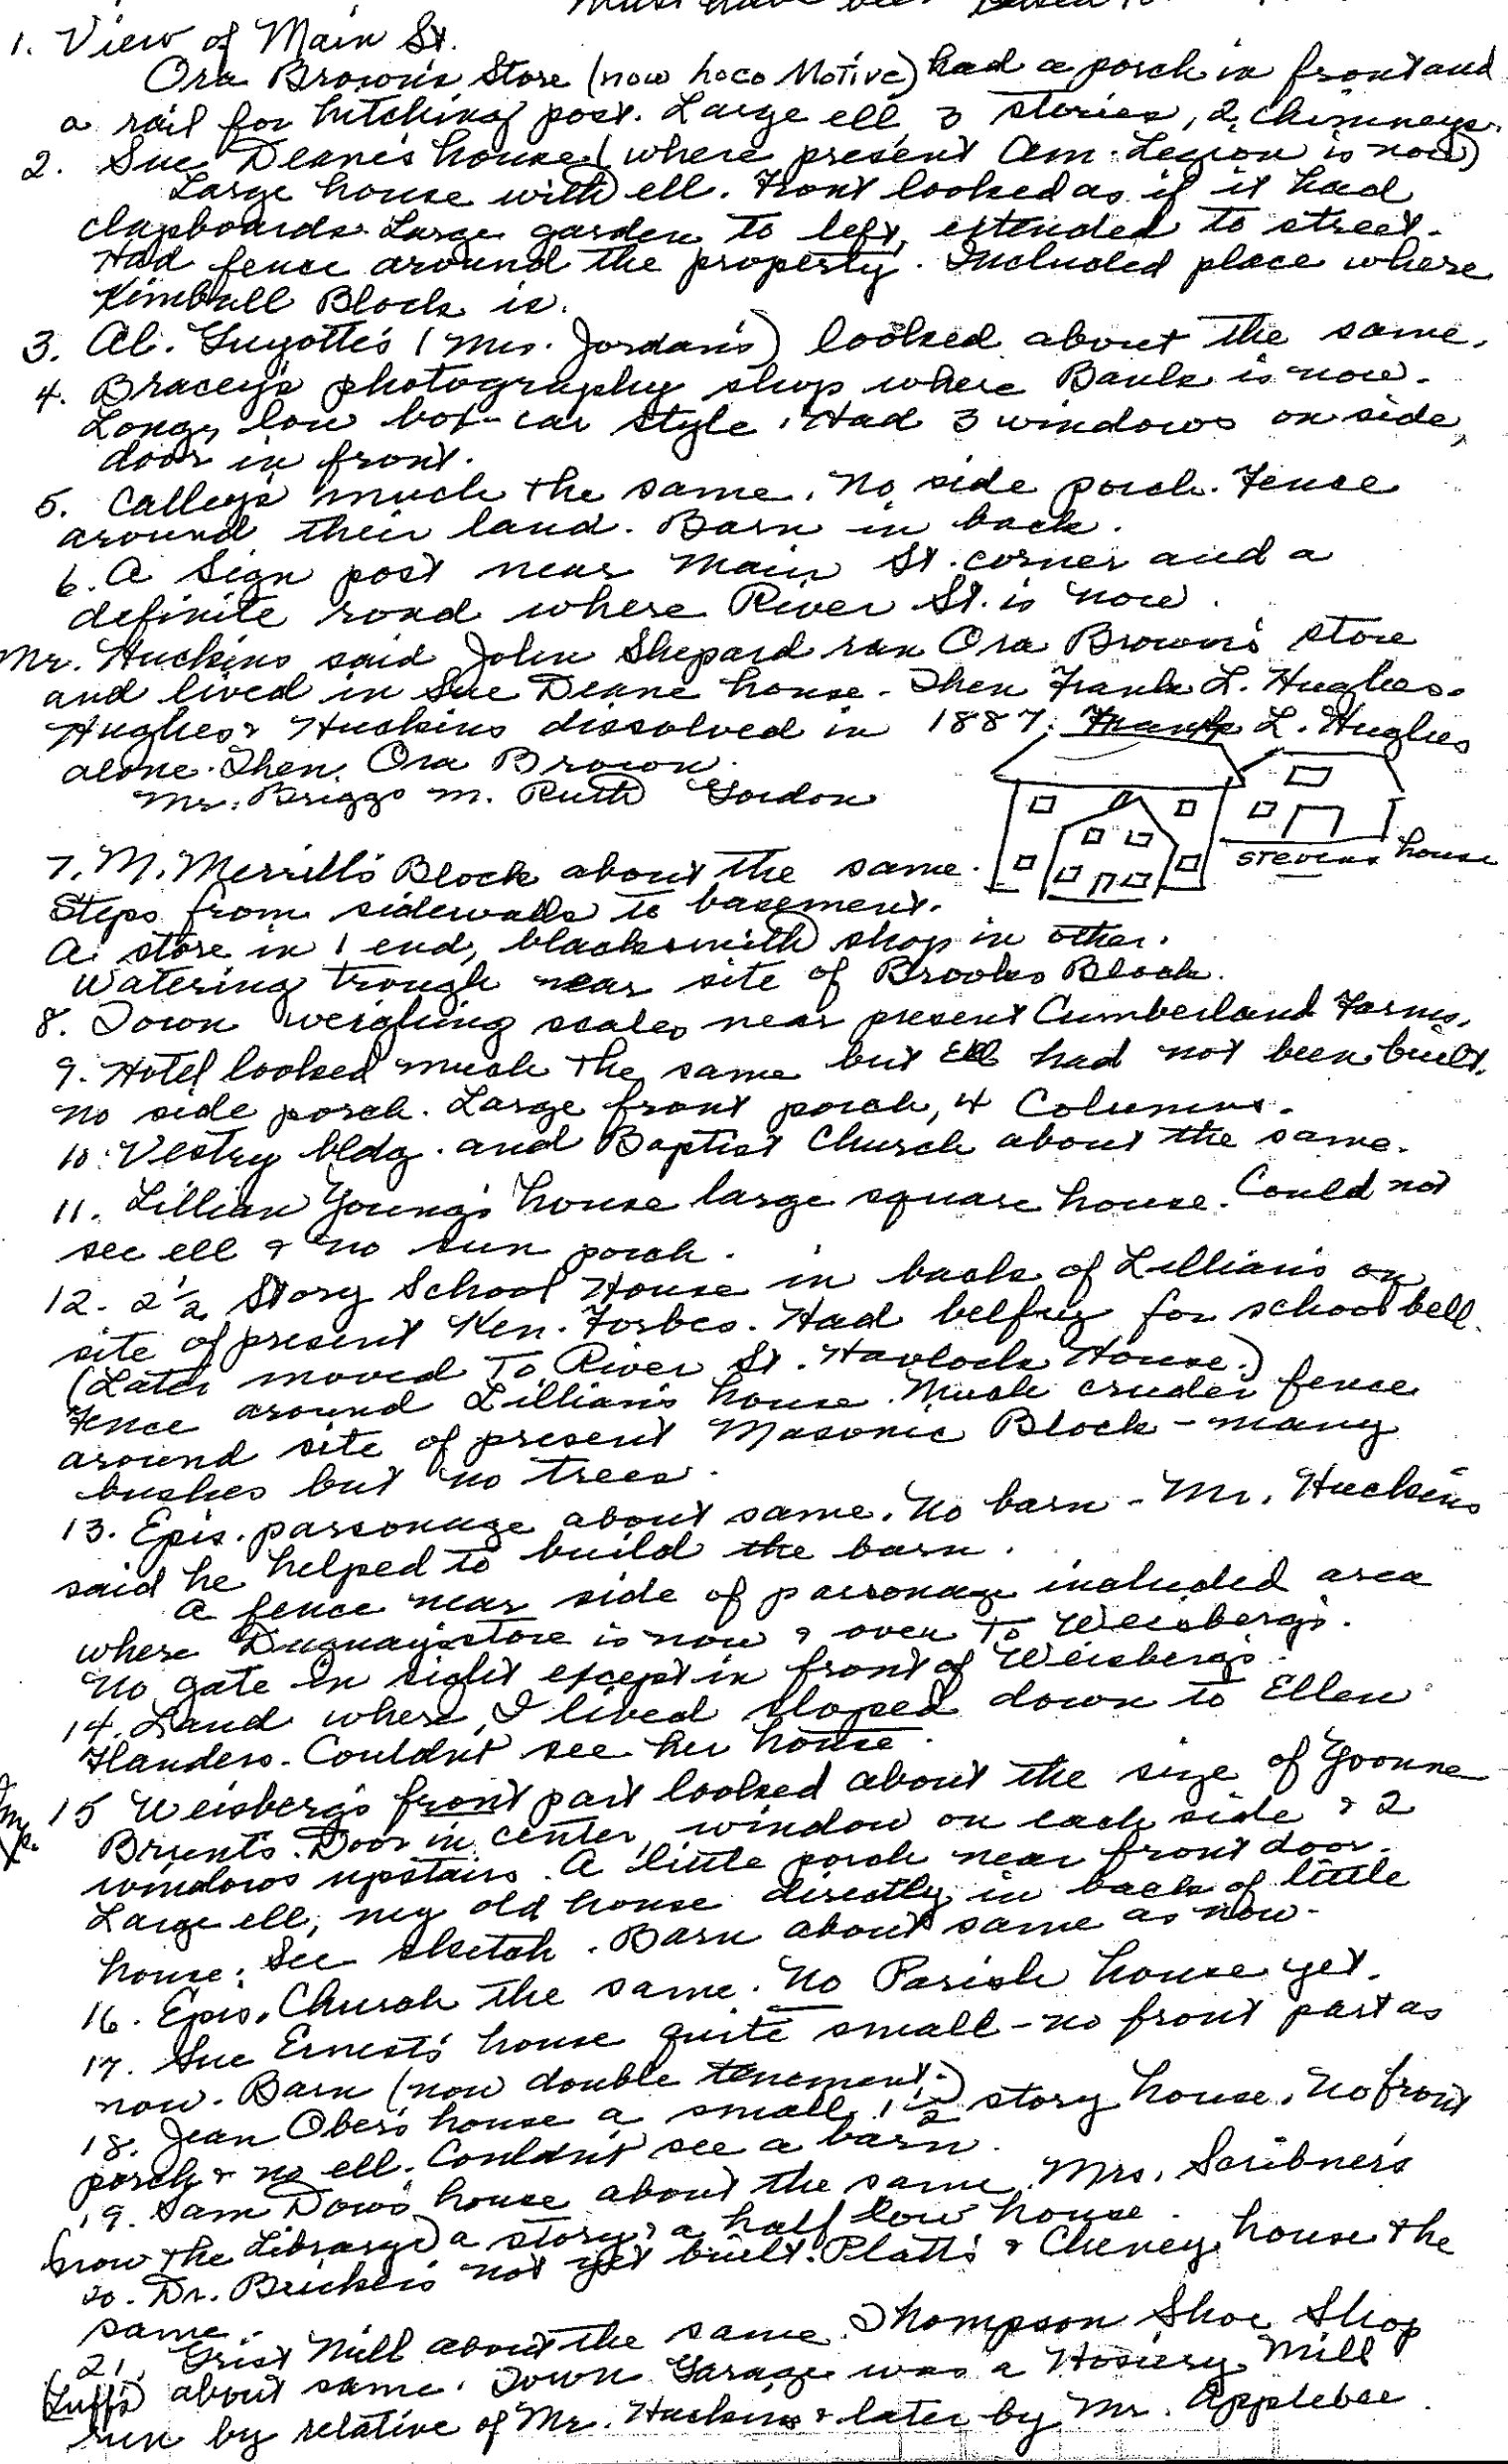 must have been
1. View of Main St.
Ora Brown's Store (now Loco Motive) had a porch in front and
a rail for hitching post. Large ell, 3 stories, 2 chimneys.
2. Sue Deane's house (where present Am. Legion is now)
Large house with ell. Front looked as if it had
clapboards. Large garden to left, extended to street.
Had fence around the property. Included place where
Kimball Block is.
3. Al. Guyotte's (Mrs. Jordan's) looked about the same.
4. Bracey's photography shop where Bank is now.
Long, low box-car style. Had 3 windows on side,
door in front.
5. Calley's much the same. No side porch. Fence
around their land. Barn in back.
6. A sign post near Main St. corner and a
definite road where River St. is now.
Mr. Huckins said John Shepard ran Ora Brown's store
and lived in Sue Deane house. Then Frank L. Hughes.
Hughes & Huckins dissolved in 1887. Frank L. Hughes
alone. Then Ora Brown.
Mr. Briggs m. Ruth Gordon
stevens house
7. M. Merrill's Block about the same.
Steps from sidewalk to basement.
A store in 1 end, blacksmith shop in other.
Watering trough near site of Brooks Block.
8. Town weighing scales near present Cumberland Farms.
9. Hotel looked much the same but Ell had not been built.
No side porch. Large front porch, 4 columns.
10. Vestry bldg. and Baptist Church about the same.
11. Lillian Young's house large square house. Could not
see ell & no sun porch.
12. 2 1/2 Story School House in back of Lillian's on
site of present Ken. Forbes. Had belfry for school bell.
(Later moved to River St. Havlock House.)
Fence around Lillian's house. Much cruder fence
around site of present Masonic Block - many
bushes but no trees.
13. Epis. parsonage about same. No barn - Mr. Huckins
said he helped to build the barn.
A fence near side of parsonage included area
where Duguay's store is now & over to Weisberg's.
No gate in sight except in front of Weisberg's.
14. Land where I lived sloped down to Ellen
Flanders. Couldn't see her house.
15 Weisberg's front part looked about the size of Yvonne
Brient's. Door in center, window on each side & 2
windows upstairs. A little porch near front door.
Large ell, my old house directly in back of little
house. See sketch. Barn about same as now.
16. Epis. Church the same. No Parish house yet.
17. Sue Ernest's house quite small - no front part as
now. Barn (now double tenement.)
18. Jean Ober's house a small 1 1/2 story house. No front
porch & no ell. Couldn't see a barn.
19. Sam Dow's house about the same. Mrs. Scribner's
(now the Library) a story & a half low house.
20. Dr. Bricker's not yet built. Platt's & Cheney house the
same.
21. Grist Mill about the same. Thompson Shoe Shop
(Luff's) about same. Town Garage was a Hosiery Mill
run by relative of Mr. Huckins & later by Mr. Applebee.